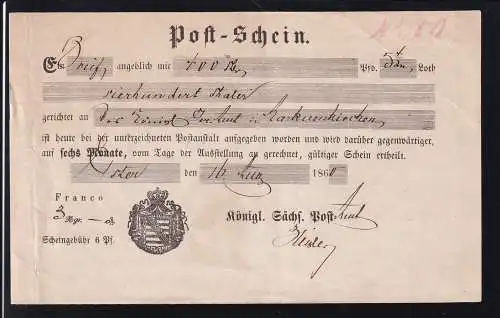 Post-Schein.
Ein Brief, angeblich mit 400 Th, Pfd. Loth
vierhundert Thaler
gerichtet an das Königl in Markneukirchen
ist heute bei der unterzeichneten Postanstalt aufgegeben worden und wird darüber gegenwärtiger,
auf sechs Monate, vom Tage der Ausstellung an gerechnet, gültiger Schein ertheilt.
den 16 Juni 1860
Franco
3 Ngr. — Pf
Scheingebühr 6 Pf.
Königl. Sächs. Post-Amt